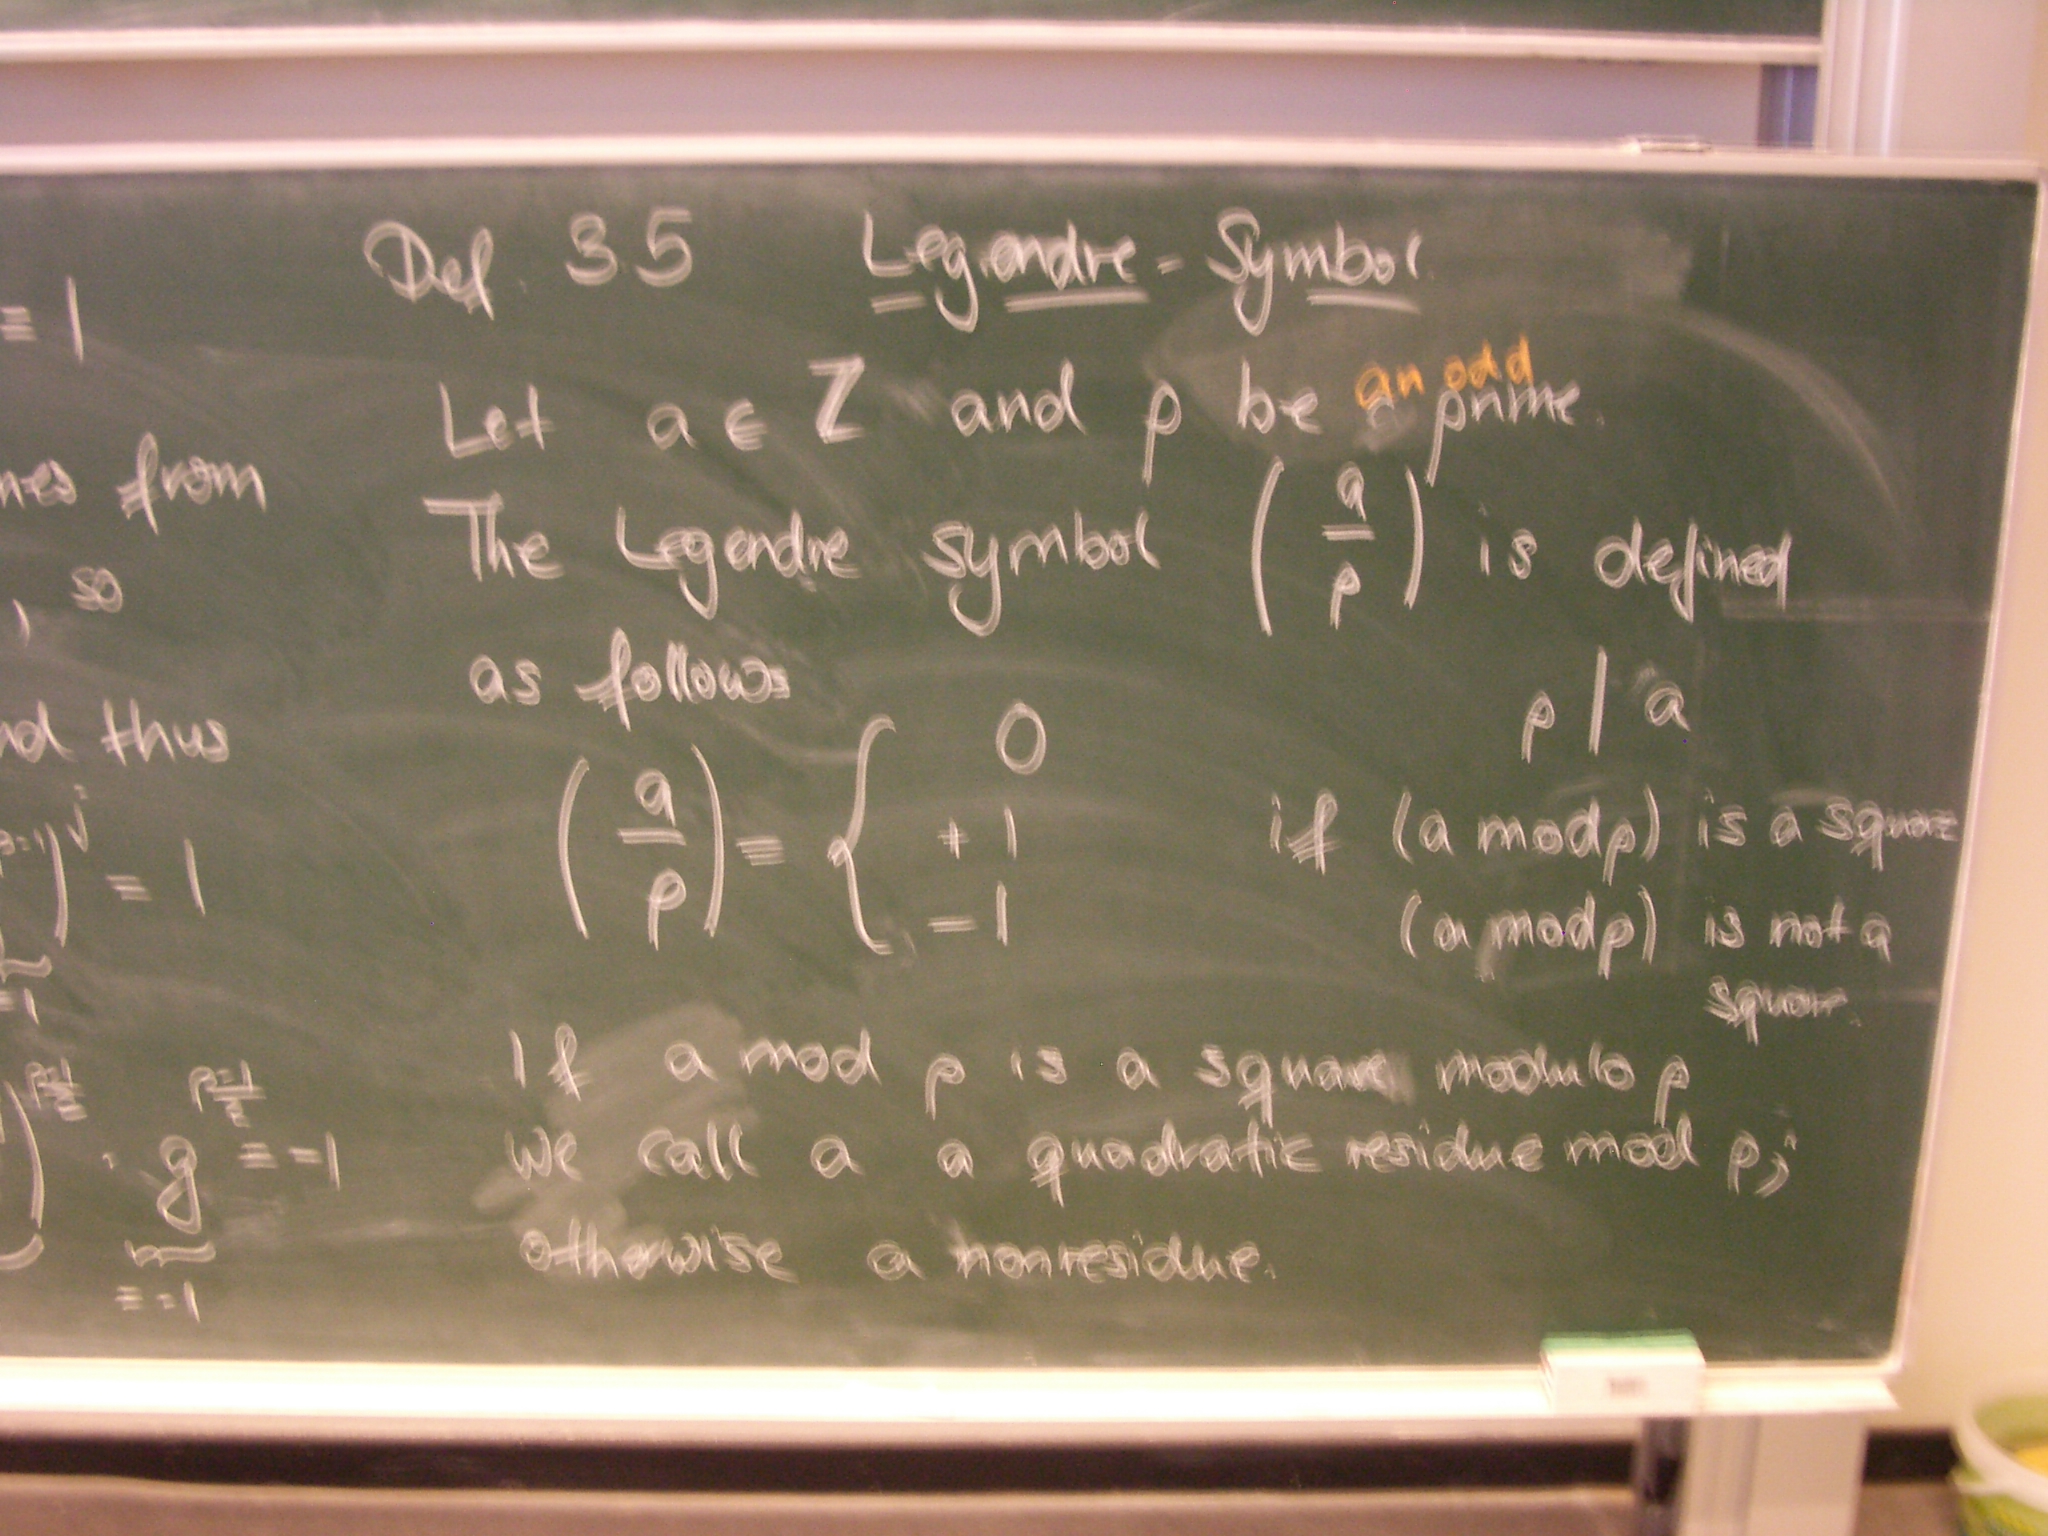 ≡ 1
from
, so
thus
= 1
= 1
p-1/2 p-1/2
) · g ≡ -1
= -1
Def. 3.5 Legendre-Symbol
Let a ∈ Z and p be an odd prime.
The Legendre symbol (a/p) is defined
as follows
(a/p) = { 0 p | a
+1 if (a mod p) is a square
-1 (a mod p) is not a
square
If a mod p is a square modulo p
we call a a quadratic residue mod p;
otherwise a nonresidue.